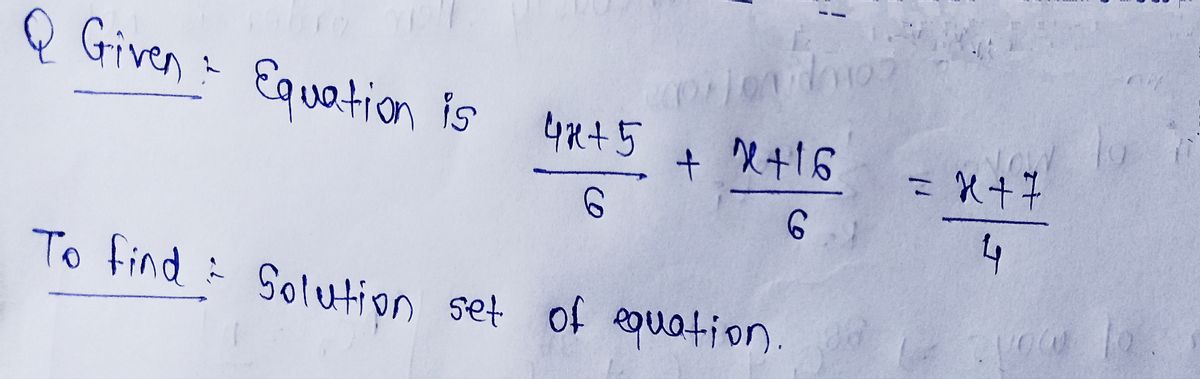 Q Given :- Equation is 4x+5/6 + x+16/6 = x+7/4
To find :- Solution set of equation.